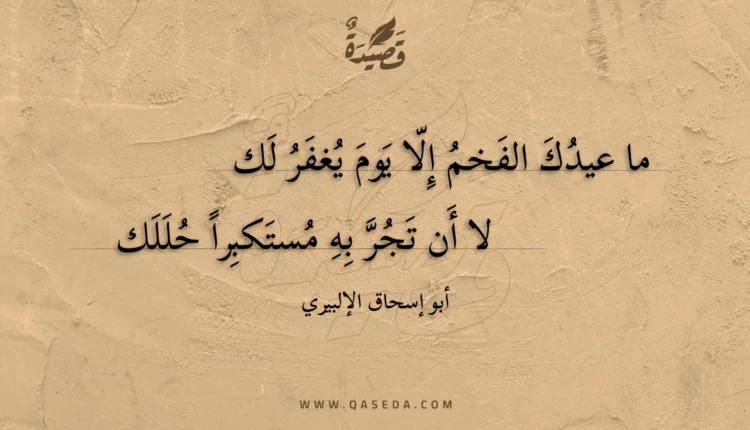 قَصِيْدَةٌ
ما عيدُكَ الفَخمُ إِلّا يَومَ يُغفَرُ لَك
لا أَن تَجُرَّ بِهِ مُستَكبِراً حُلَلَك
أبو إسحاق الإلبيري
WWW.QASEDA.COM